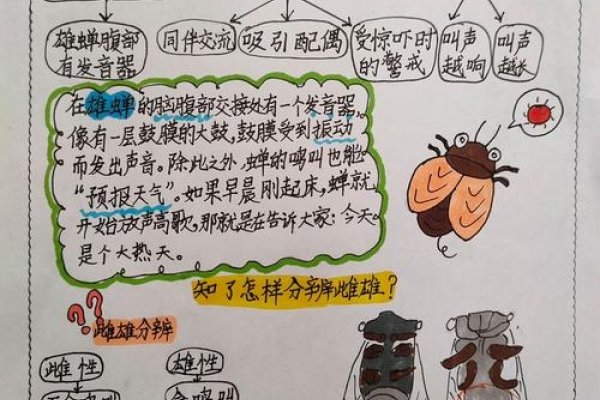 雄蝉腹部
有发音器
同伴交流
吸引配偶
受惊吓时
的警戒
叫声
越响
叫声
越长
在雄蝉的胸腹部交接处有一个发音器,
像有一层鼓膜的大鼓,鼓膜受到振动
而发出声音。除此之外,蝉的鸣叫也能
“预报天气”。如果早晨刚起床,蝉就
开始放声高歌,那就是在告诉大家:今天
是个大热天。
知了怎样分辨雌雄?
??
雌雄分辨
雌性
雄性
会鸣叫